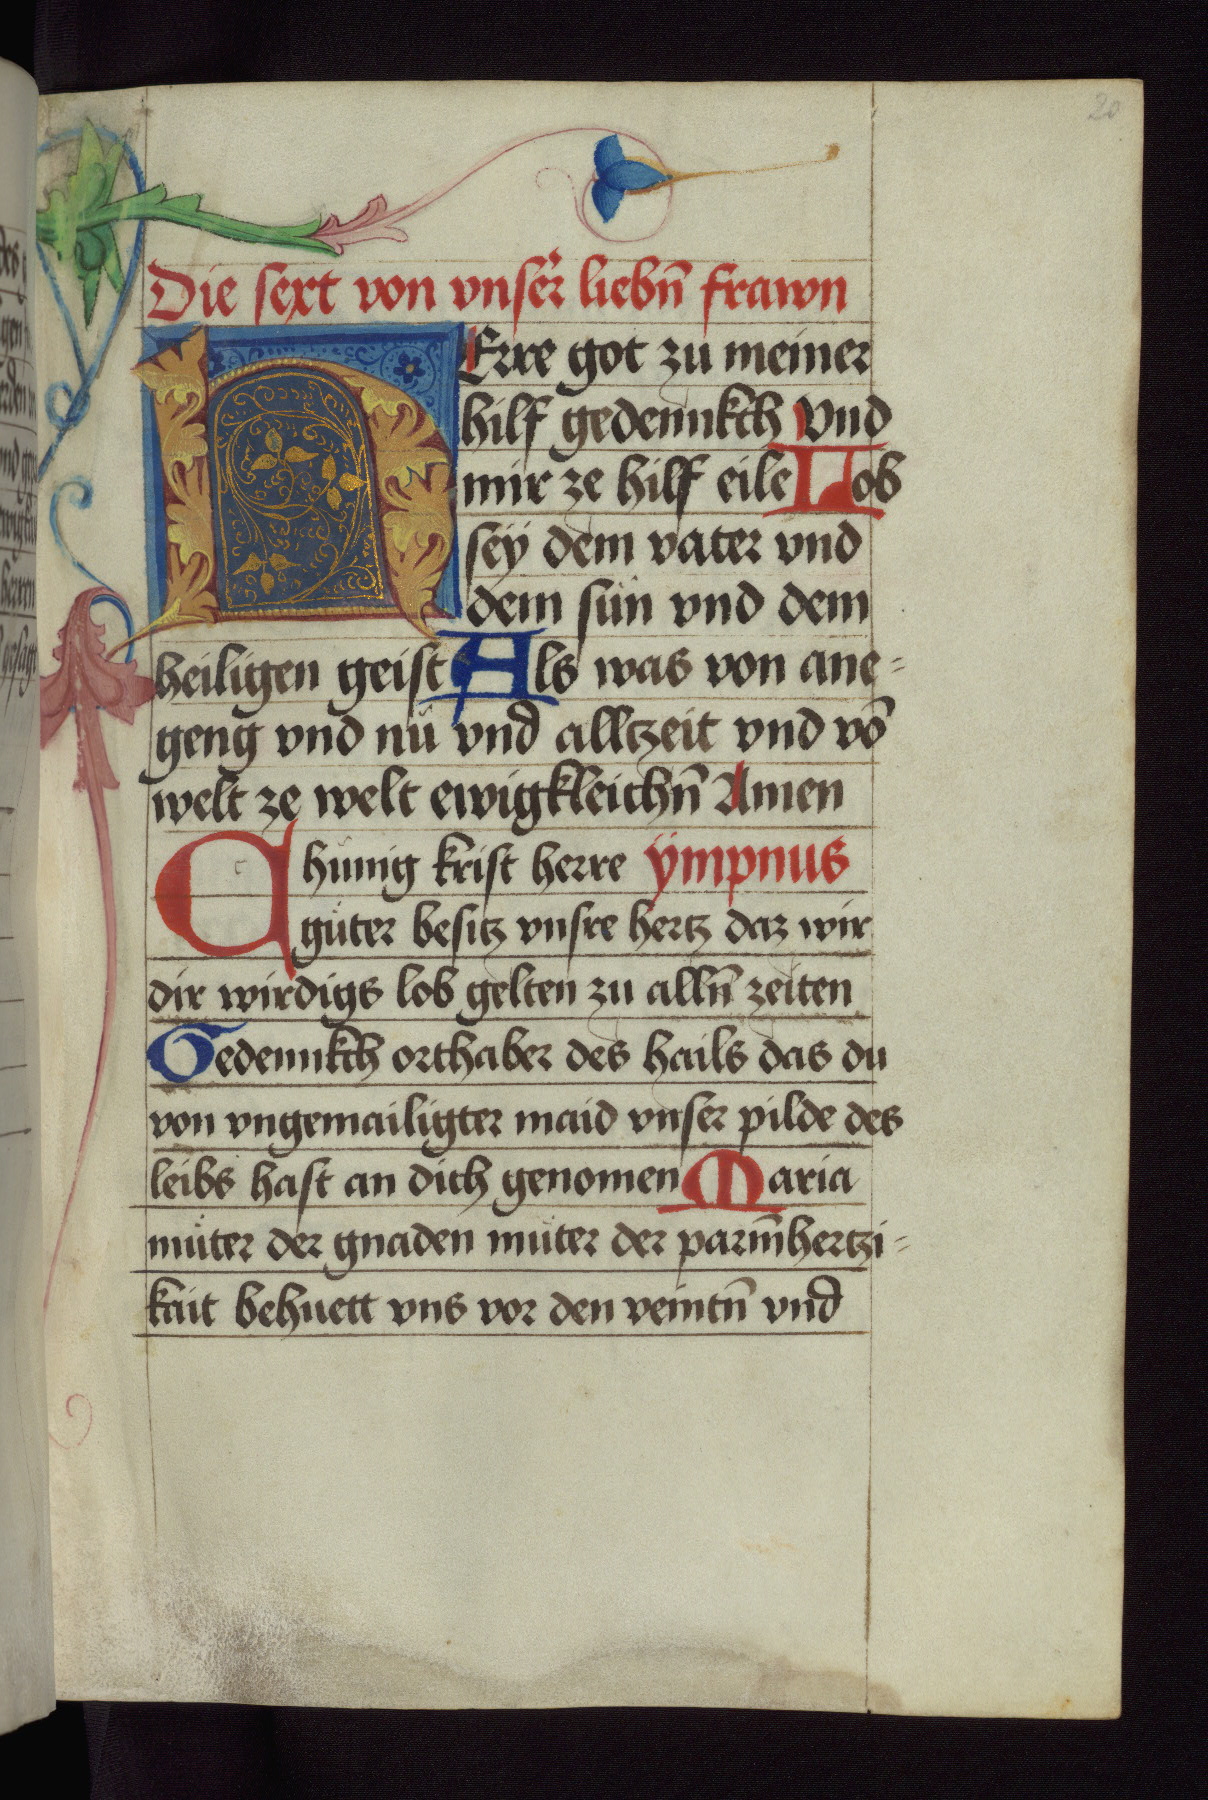 20
Die sext von vnser liebn̄ frawn
HErre got zu meiner
hilf gedennkch Vnd
mir ze hilf eile Lob
seÿ dem vater vnd
dem sün vnd dem
heiligen geist Als was von ane-
geng vnd nü vnd alltzeit vnd vō
welt ze welt ewigkleichn̄ Amen
Chünig krist herre ÿmpnus
gůter besitz vnsre hertz daz wir
dir wirdigs lob gelten zu alln̄ zeiten
Gedennkch orthaber des hails das du
von vngemailigter maid vnser pilde des
leibs hast an dich genomen Maria
můter der gnaden můter der parm̄hertzi-
kait behuett vns vor den veintn̄ vnd